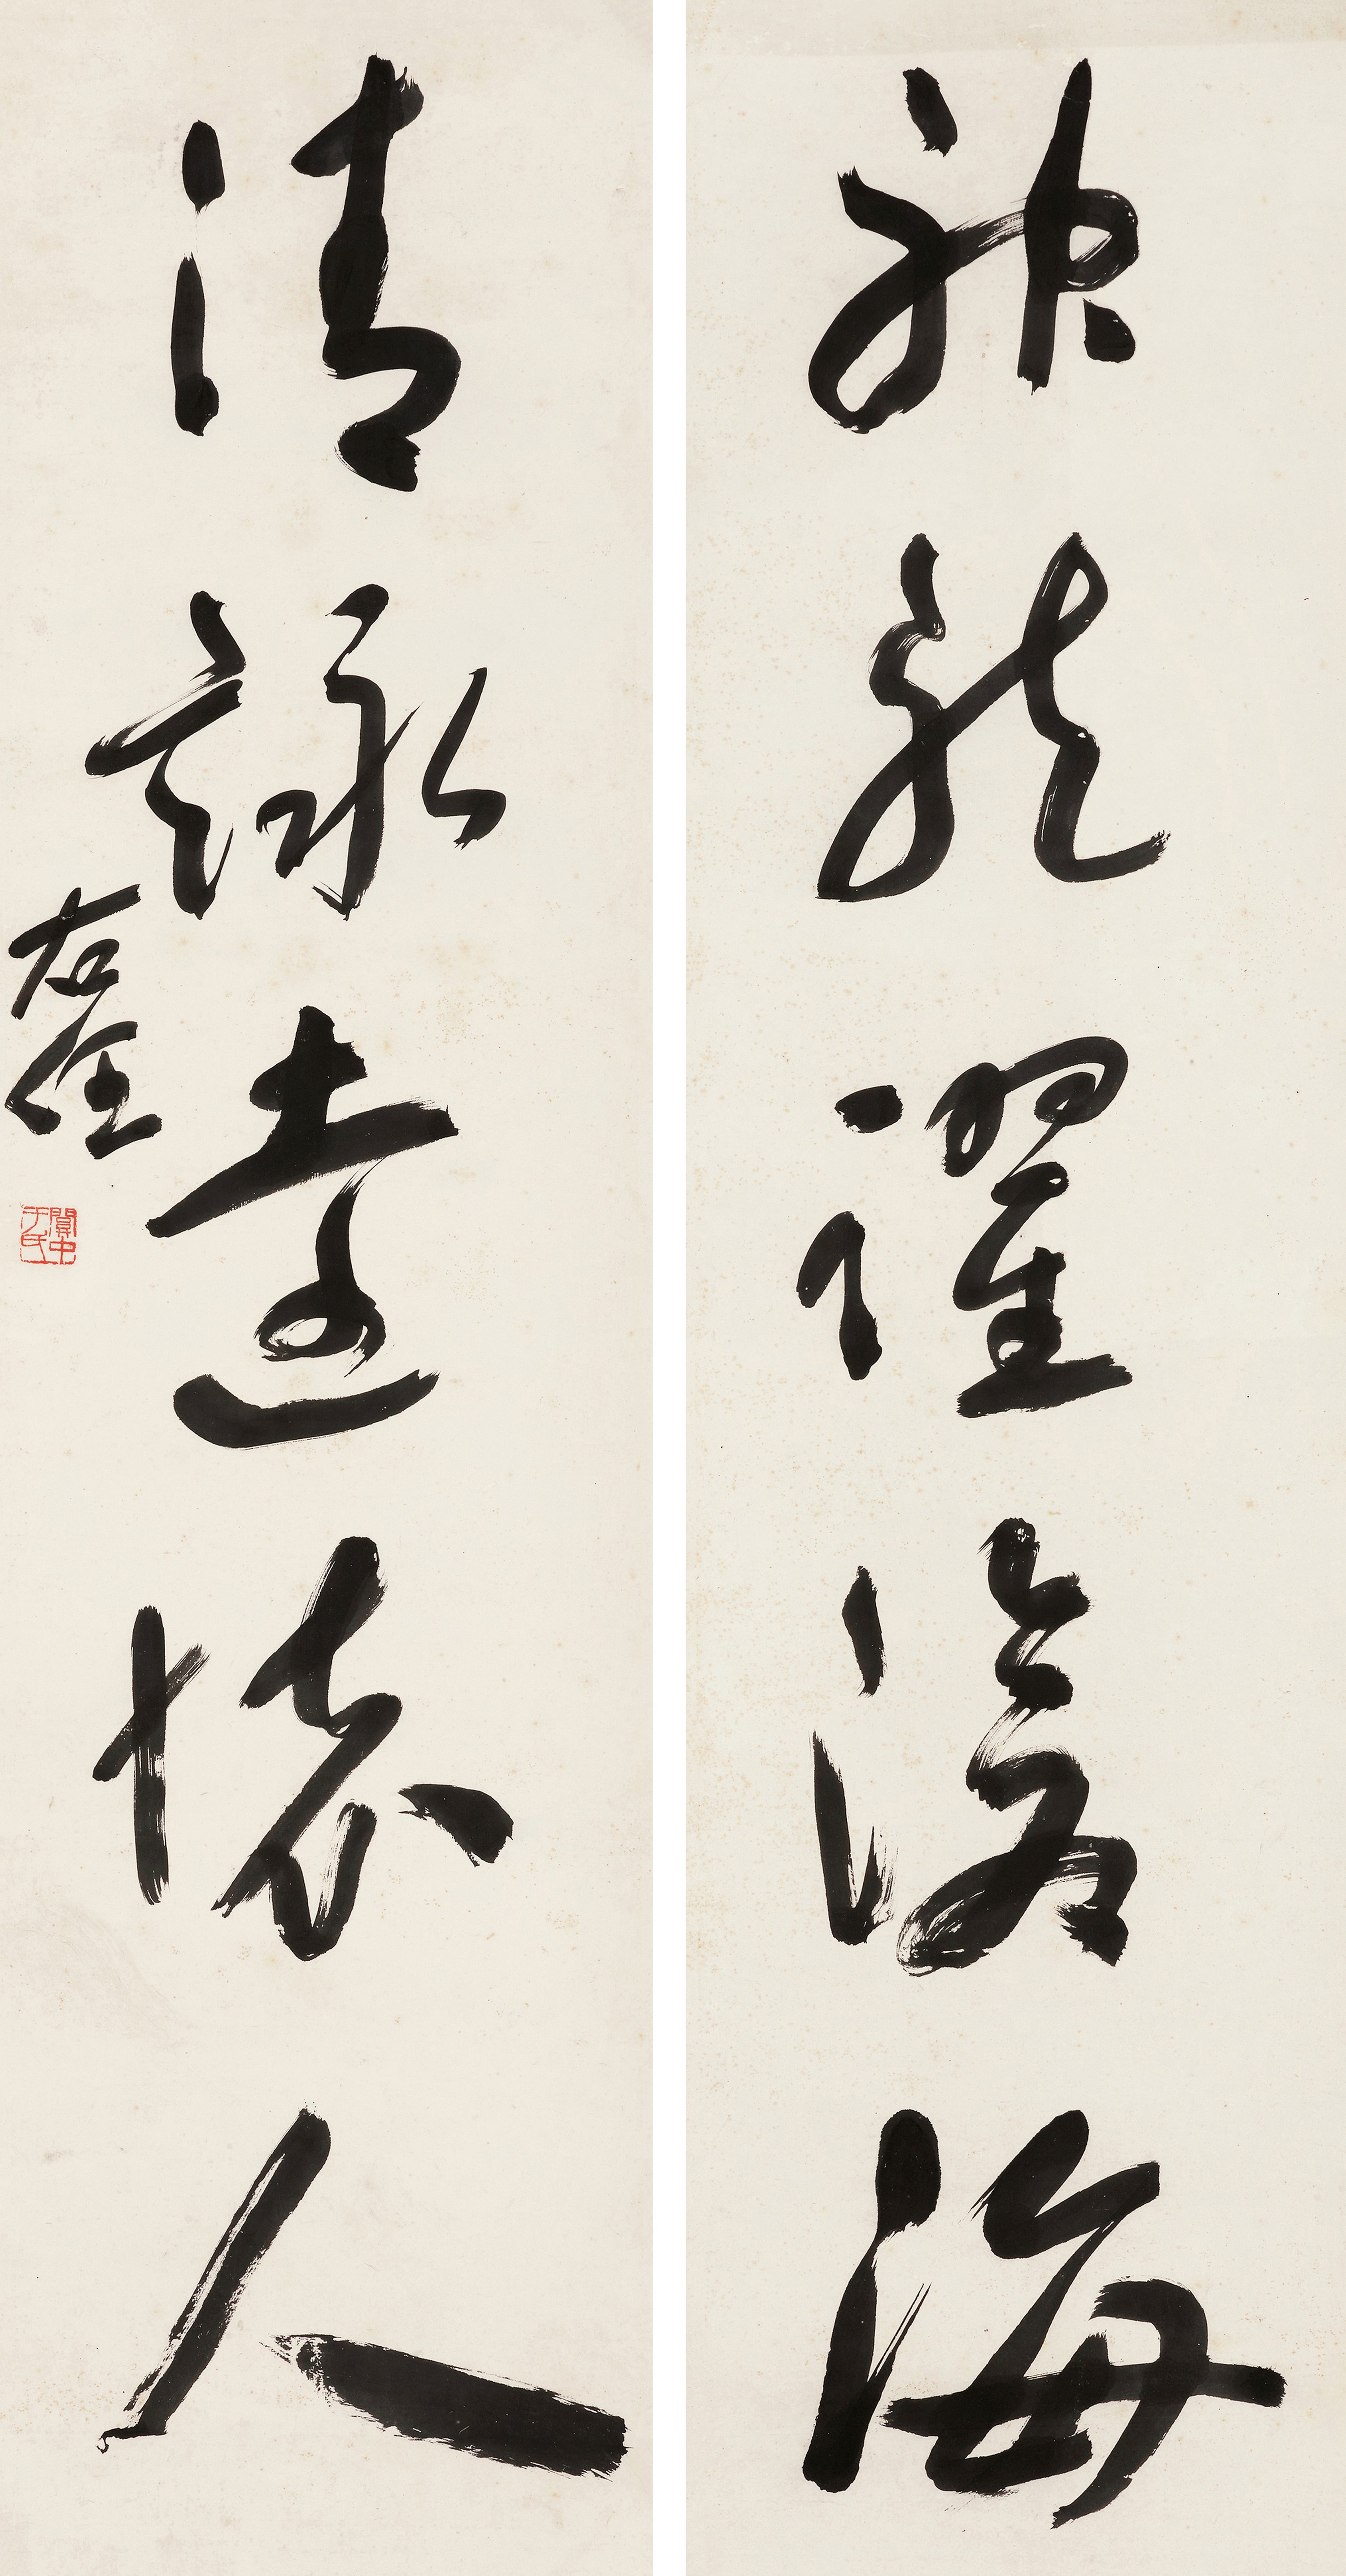 神龍躍滄海
清詠遠懷人
右任
關中于氏